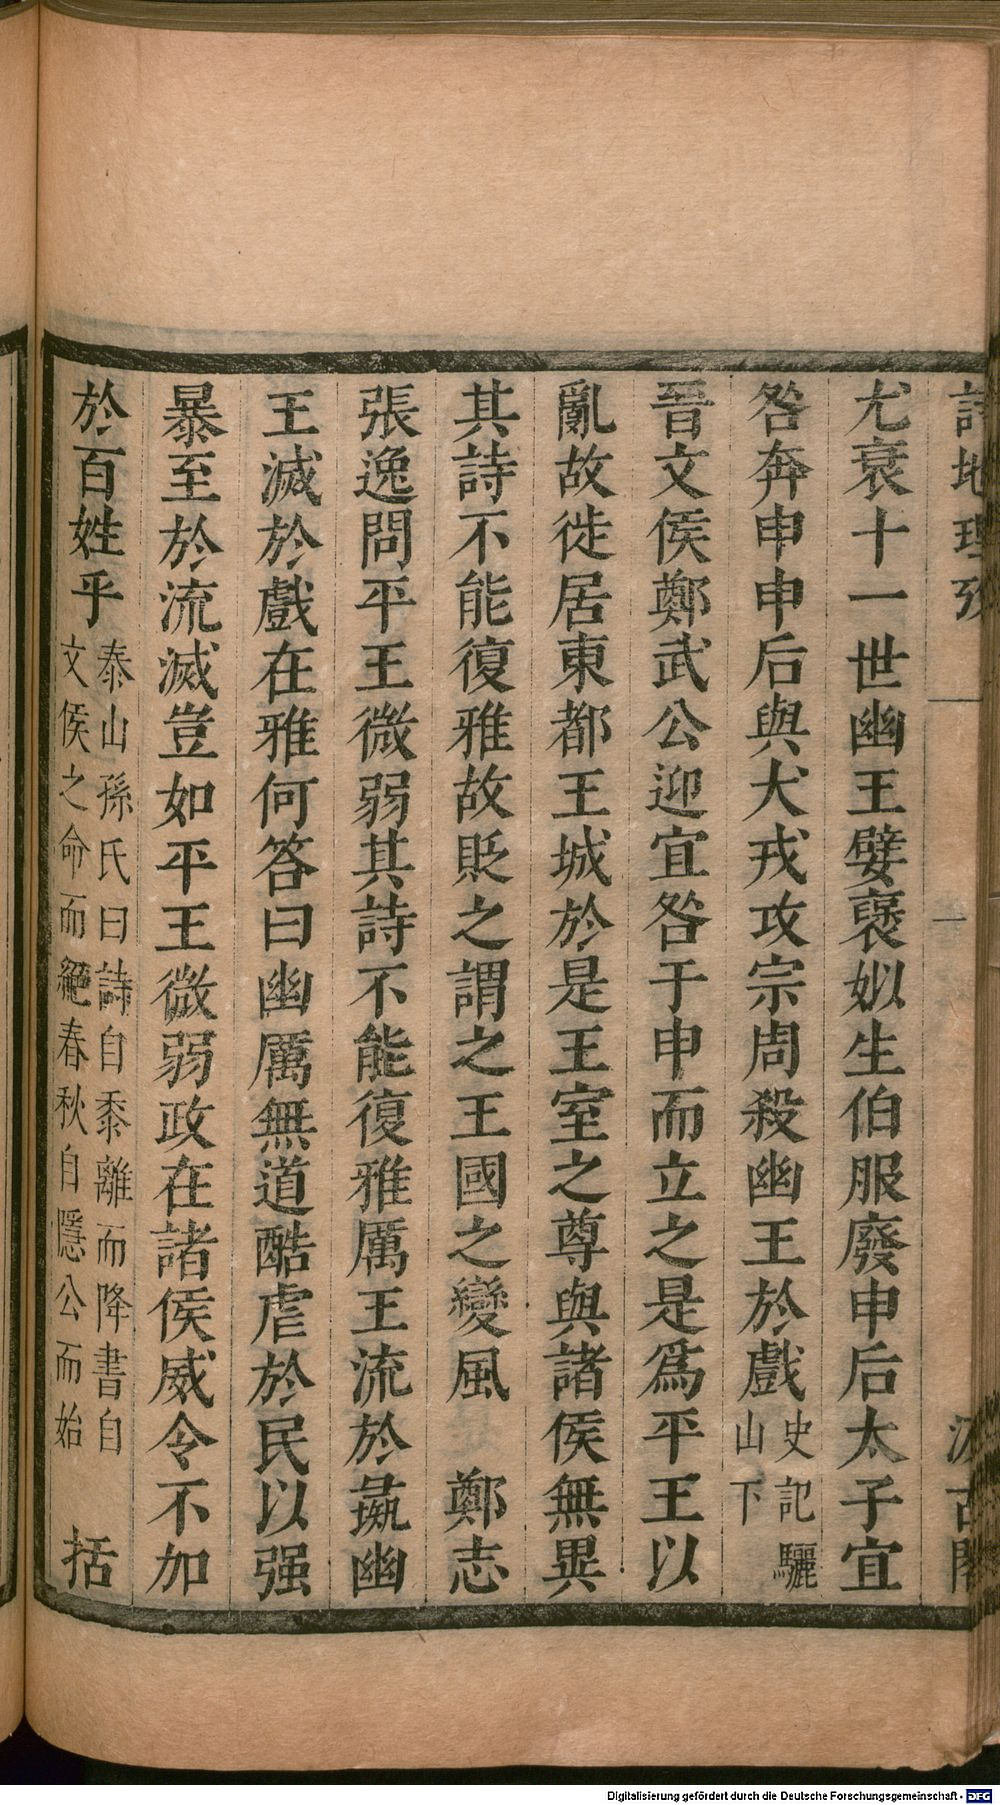 詩地理攷 一 汲古閣
尤衰十一世幽王嬖褒姒生伯服廢申后太子宜
咎奔申申后與犬戎攻宗周殺幽王於戲史記驪山下
晉文侯鄭武公迎宜咎于申而立之是爲平王以
亂故徙居東都王城於是王室之尊與諸侯無異
其詩不能復雅故貶之謂之王國之變風 鄭志
張逸問平王微弱其詩不能復雅厲王流於彘幽
王滅於戲在雅何答曰幽厲無道酷虐於民以强
暴至於流滅豈如平王微弱政在諸侯威令不加
於百姓乎泰山孫氏曰詩自黍離而降書自文侯之命而絕春秋自隱公而始 括
Digitalisierung gefördert durch die Deutsche Forschungsgemeinschaft - DFG